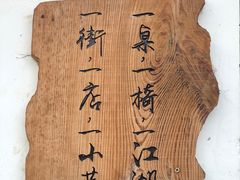 一桌·一椅·一江
一街·一店·一小